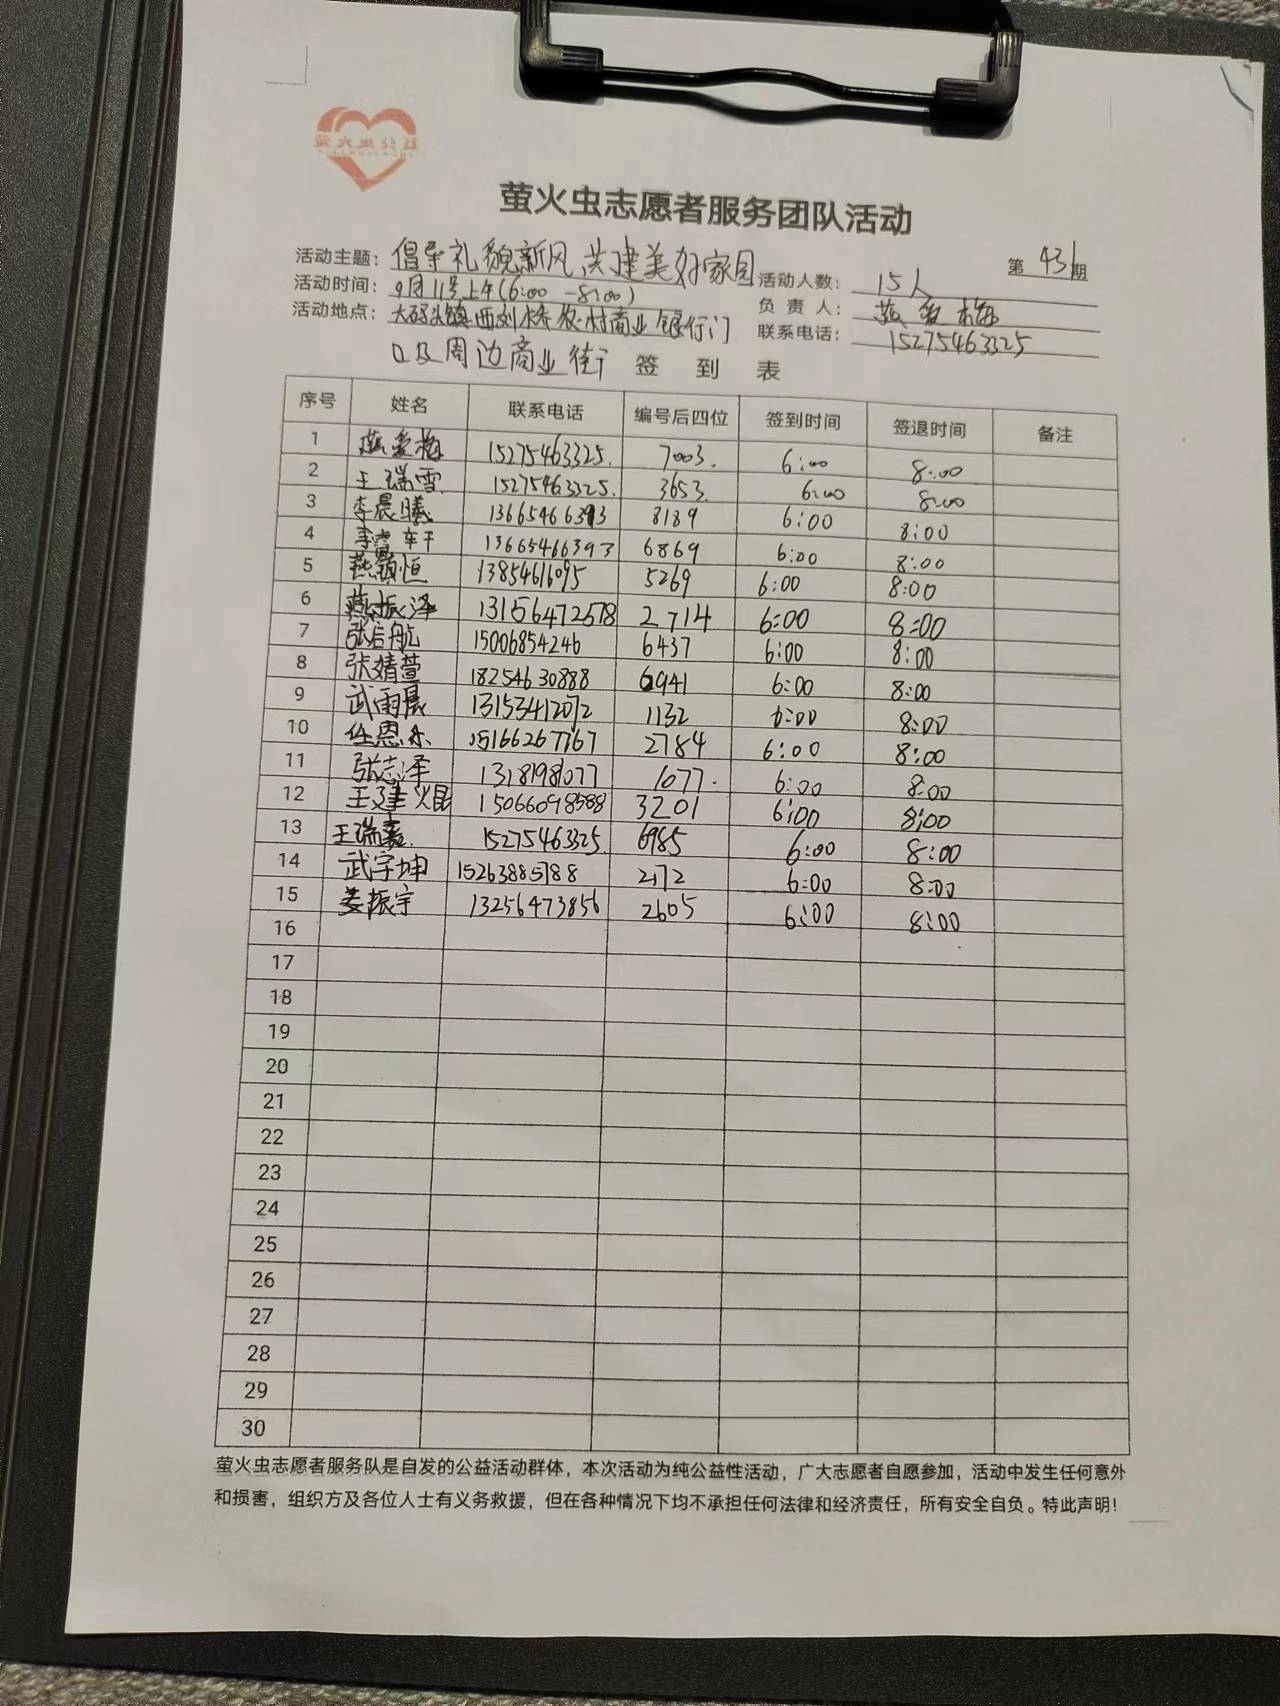 萤火虫志愿者服务团队活动
第431期
活动主题：倡导礼貌新风、共建美好家园 活动人数：15人
活动时间：9月11号上午(6:00-8:00) 负责人：燕爱梅
活动地点：大码头镇西刘桥农村商业银行门 联系电话：15275463325
口及周边商业街 签到表
序号 姓名 联系电话 编号后四位 签到时间 签退时间 备注
1 燕爱梅 15275463325. 7003. 6:00 8:00
2 王瑞雪 15275463325. 3653. 6:00 8:00
3 李晨曦 13665466393 8189 6:00 8:00
4 李 13665466393 6869 6:00 8:00
5 燕颖恒 13854616095 5269 6:00 8:00
6 燕振泽 13156472578 2714 6:00 8:00
7 张启航 15006854246 6437 6:00 8:00
8 张婧萱 18254630888 6941 6:00 8:00
9 武雨晨 13153412072 1132 6:00 8:00
10 任恩乐 15166267767 2784 6:00 8:00
11 张志泽 13181981077 1077. 6:00 8:00
12 王建焜 15066098588 3201 6:00 8:00
13 王瑞嘉 15275463325 6985 6:00 8:00
14 武宇坤 15263885788 2172 6:00 8:00
15 姜振宇 13256473856 2605 6:00 8:00
16
17
18
19
20
21
22
23
24
25
26
27
28
29
30
萤火虫志愿者服务队是自发的公益活动群体，本次活动为纯公益性活动，广大志愿者自愿参加，活动中发生任何意外
和损害，组织方及各位人士有义务救援，但在各种情况下均不承担任何法律和经济责任，所有安全自负。特此声明！